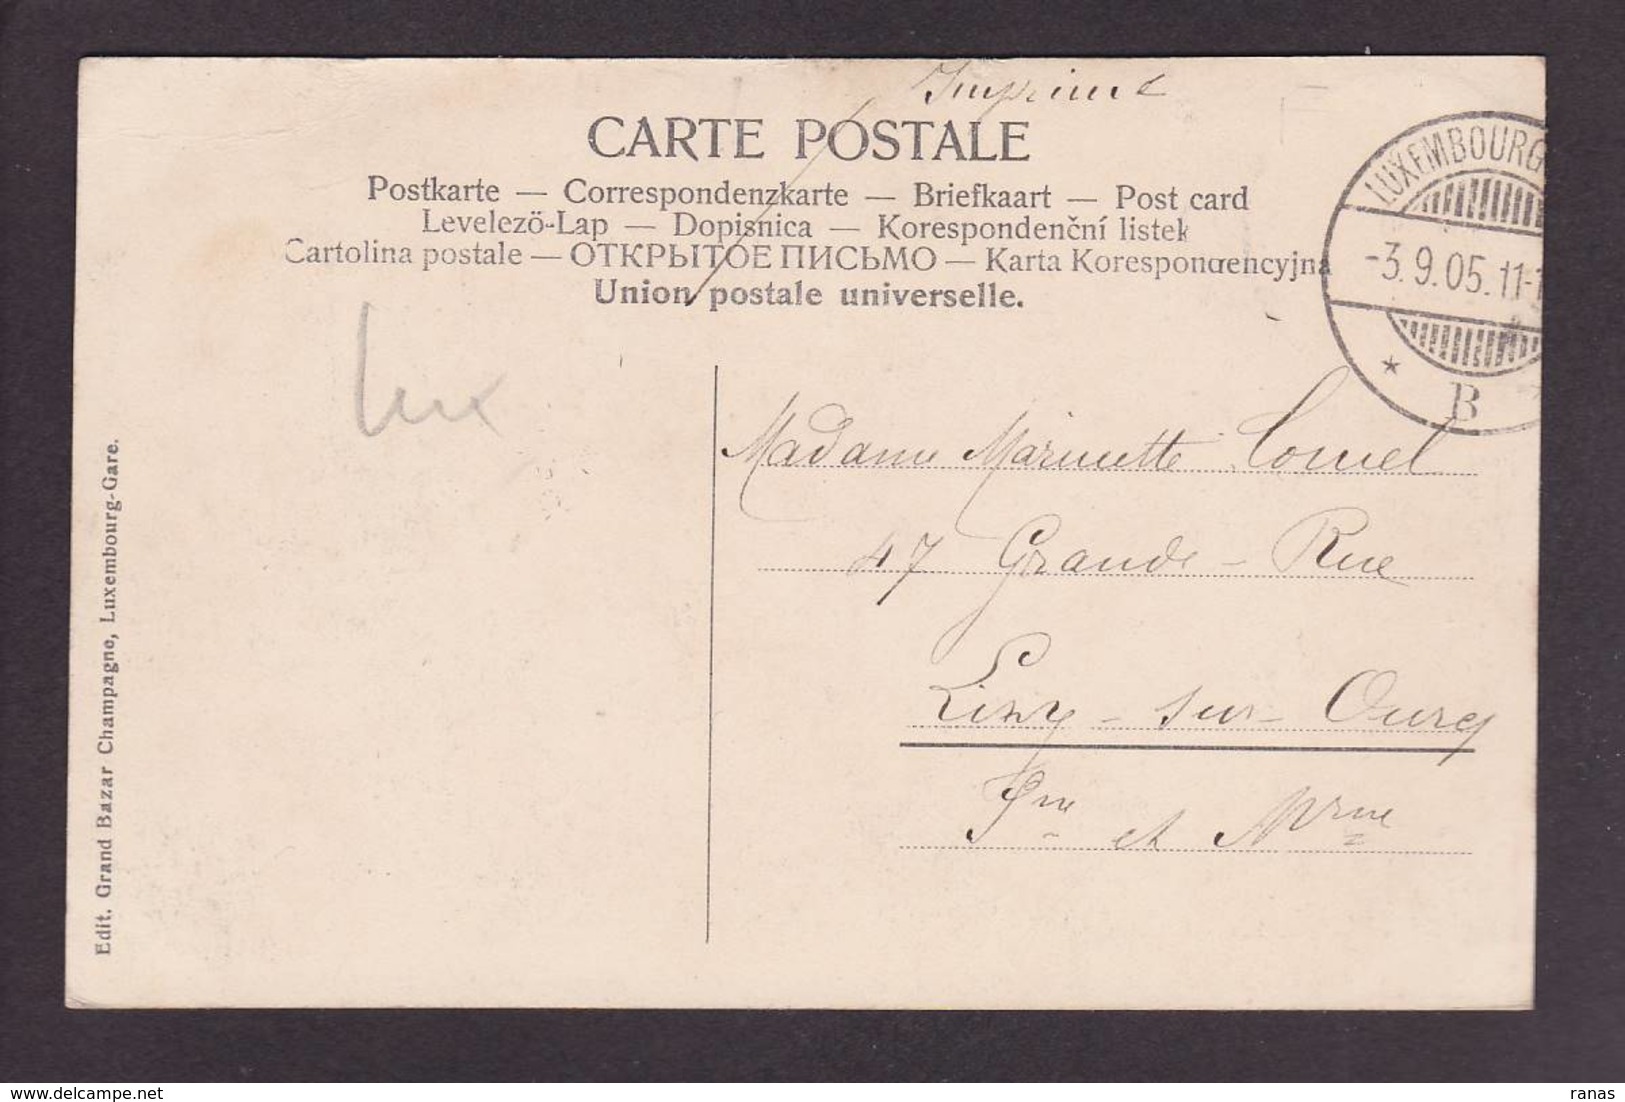 Imprimé
CARTE POSTALE
Postkarte — Correspondenzkarte — Briefkaart — Post card
Levelezö-Lap — Dopisnica — Korespondenční listek
Cartolina postale — ОТКРЫТОЕ ПИСЬМО — Karta Korespondencyjna
Union postale universelle.
LUXEMBOURG
-3.9.05.11-1
* B
lux
Madame Marinette
47 Grande-Rue
Lizy-sur-Ourcq
Sne et Mrne
Edit. Grand Bazar Champagne, Luxembourg-Gare.
delcampe.net
ranas